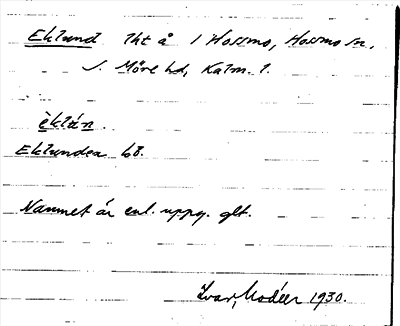 Eklund lht å 1 Hossmo, Hossmo sn,
S. Möre hd, Kalm. l.
èklún
Eklundea bb.
Namnet är enl. uppg. glt.
Ivar Modéer 1930.